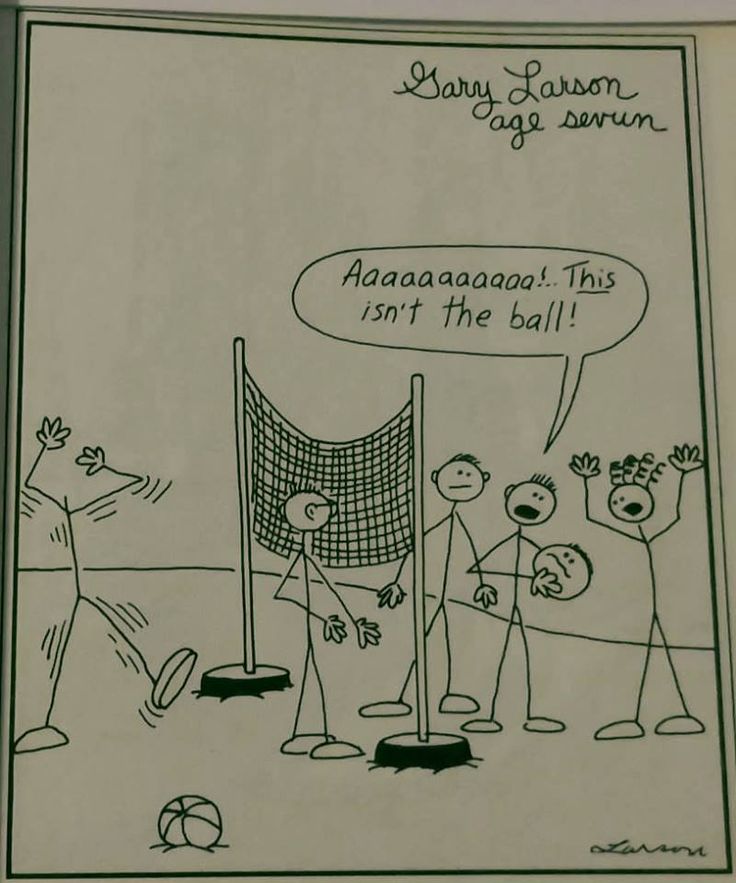 Gary Larson
age sevun
Aaaaaaaaaaa!.. This
isn't the ball!
Larson